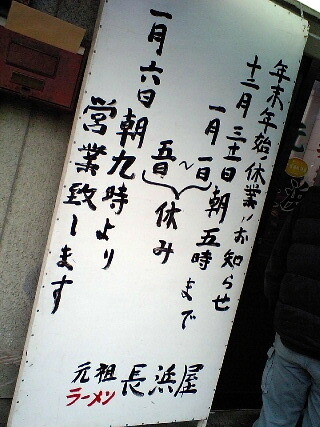 年末年始休業のお知らせ
十二月三十一日朝五時まで
一月一日〜五日休み
一月六日朝九時より
営業致します
元祖
ラーメン長浜屋